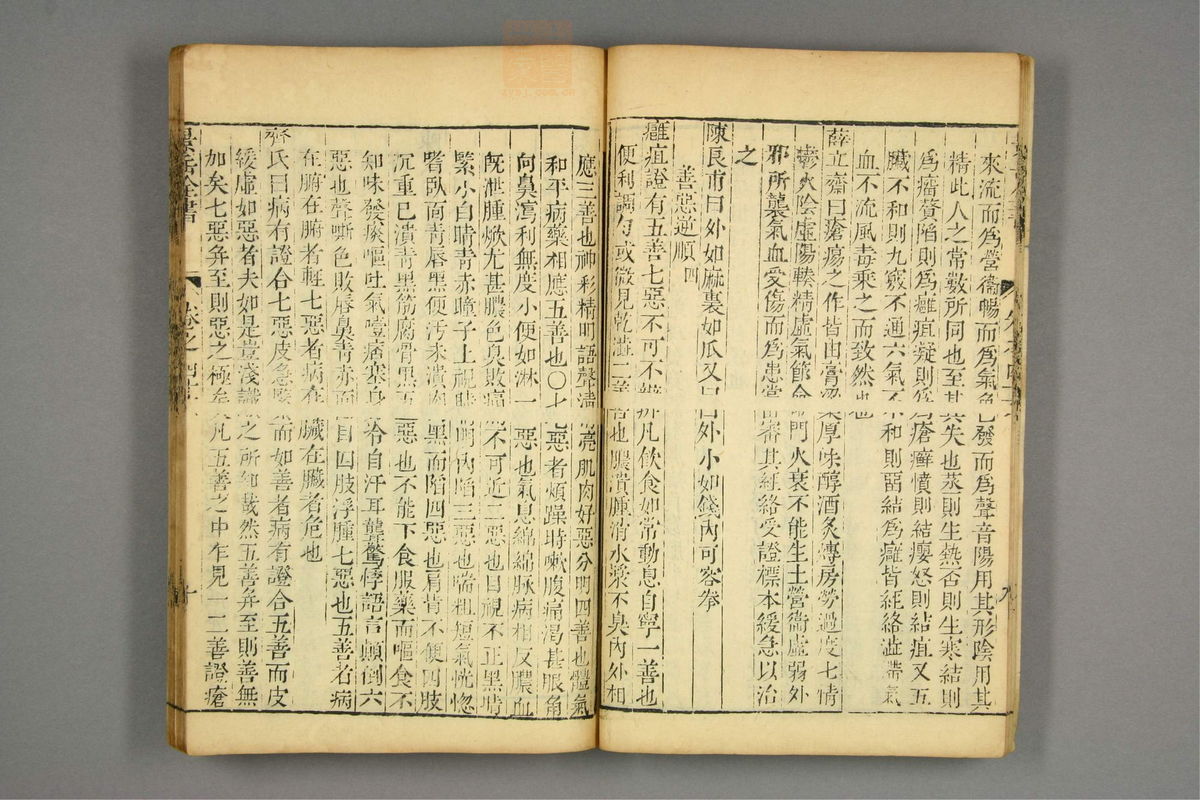 來流而為營衞暢而為氣色發而為聲音陽用其形陰用其
精此人之常數所同也至其失也蒸則生熱否則生寒結則
為瘤贅陷則為癰疽凝則為瘡癬憤則結癭怒則結疽又五
臟不和則九竅不通六氣不和則留結為癰皆經絡澁滯氣
血不流風毒乘之而致然也
薛立齋曰瘡瘍之作皆由膏粱厚味醇酒炙煿房勞過度七情
鬱火陰虛陽輳精虛氣節命門火衰不能生土營衞虛弱外
邪所襲氣血受傷而為患當審其經絡受證標本緩急以治
之
陳良甫曰外如麻裏如瓜又曰外小如錢內可容拳
善惡逆順 四
癰疽證有五善七惡不可不辨凡飲食如常動息自寧一善也
便利調勻或微見乾澁二善也膿潰腫消水漿不臭內外相
應三善也神彩精明語聲清亮肌肉好惡分明四善也體氣
和平病藥相應五善也〇七惡者煩躁時嗽腹痛渴甚眼角
向鼻瀉利無度小便如淋一惡也氣息綿綿脉病相反膿血
既泄腫焮尤甚膿色臭敗痛不可近二惡也目視不正黑睛
緊小白睛青赤瞳子上視睛明內陷三惡也喘粗短氣恍惚
嗜臥面青唇黑便汚未潰肉黑而陷四惡也肩背不便四肢
沉重已潰青黑筋腐骨黑五惡也不能下食服藥而嘔食不
知味發痰嘔吐氣噎痞塞身冷自汗耳聾驚悸語言顛倒六
惡也聲嘶色敗唇鼻青赤面目四肢浮腫七惡也五善者病
在腑在腑者輕七惡者病在臟在臟者危也
齊氏曰病有證合七惡皮急緊而如善者病有證合五善而皮
緩虛如惡者夫如是豈淺識之所知哉然五善并至則善無
如矣七惡并至則惡之極矣凡五善之中乍見一二善證瘡
景岳全書
卷之
十
九